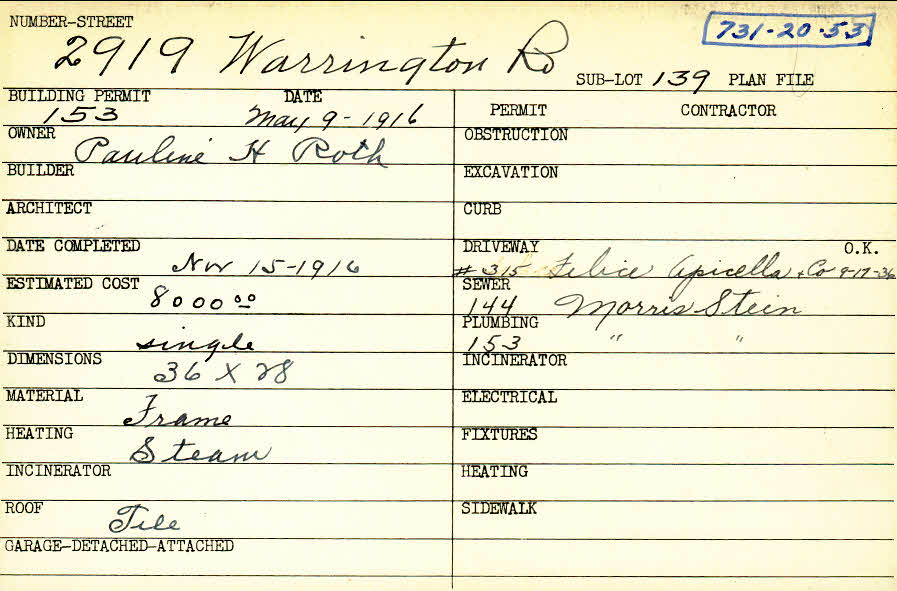 NUMBER-STREET
731-20-53
2919 Warrington Rd
SUB-LOT 139 PLAN FILE
BUILDING PERMIT DATE
153 May 9-1916
OWNER
Pauline H Roth
BUILDER
ARCHITECT
DATE COMPLETED
Nov 15-1916
ESTIMATED COST
8000 00
KIND
single
DIMENSIONS
36 X 28
MATERIAL
Frame
HEATING
Steam
INCINERATOR
ROOF
Tile
GARAGE-DETACHED-ATTACHED
PERMIT CONTRACTOR
OBSTRUCTION
EXCAVATION
CURB
DRIVEWAY O.K.
#315 Felice Apicella + Co 9-17-36
SEWER
144 Morris Stein
PLUMBING
153 " "
INCINERATOR
ELECTRICAL
FIXTURES
HEATING
SIDEWALK